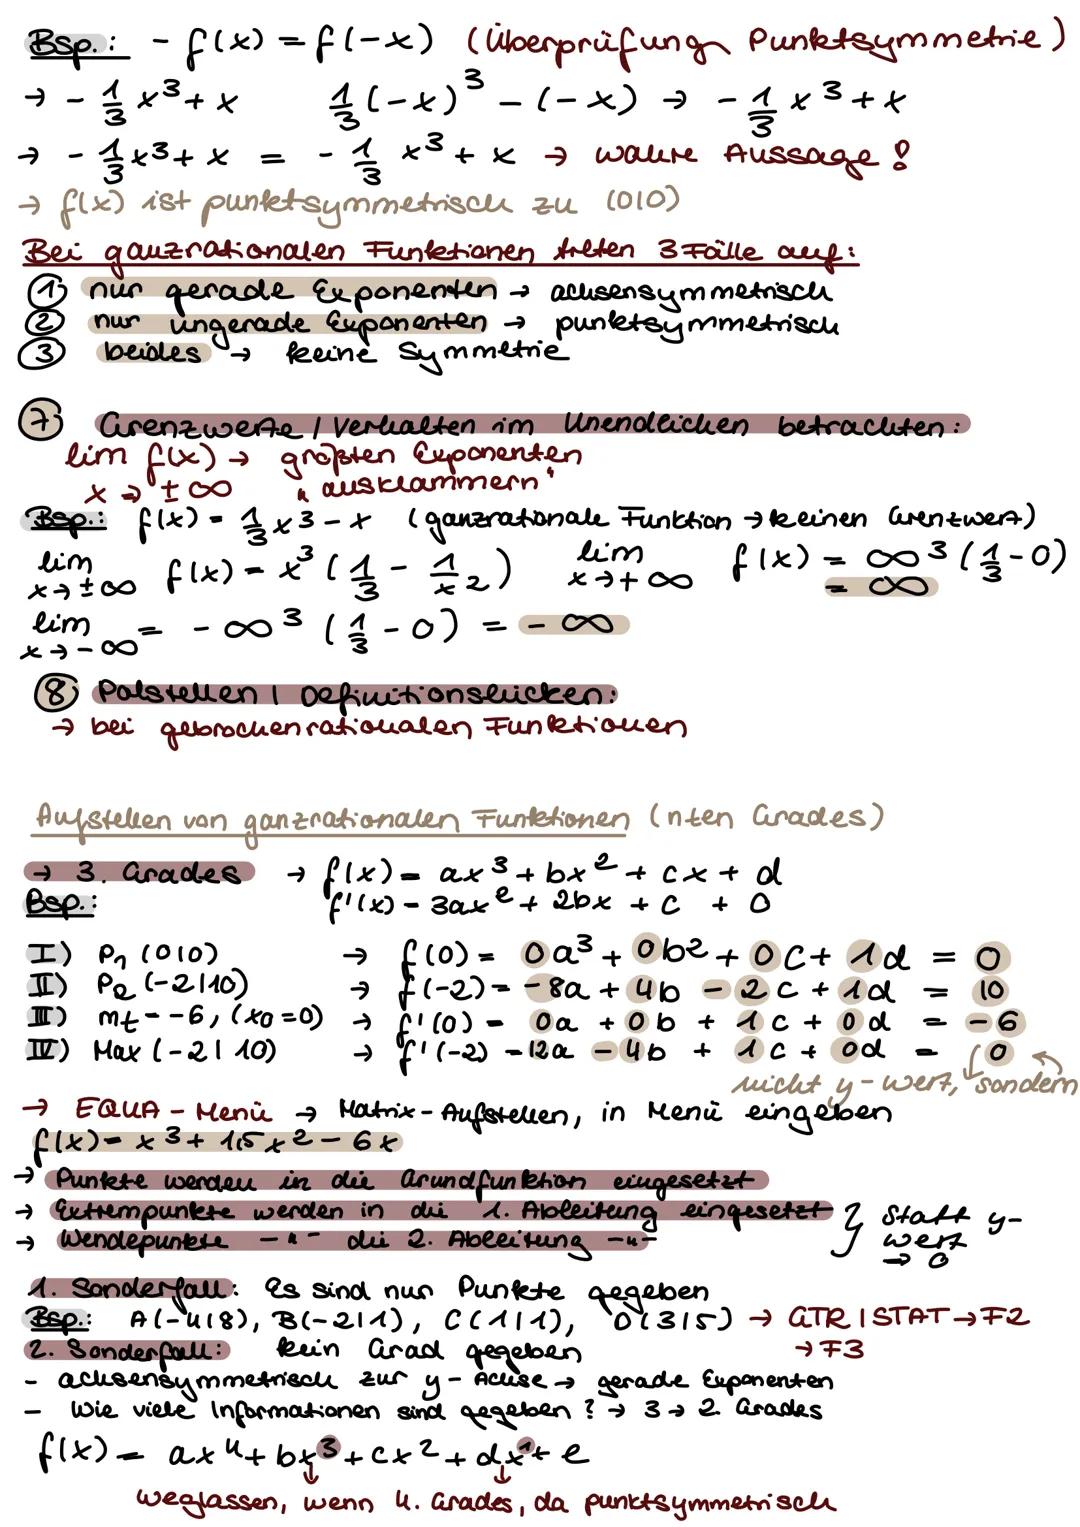 Bsp.: - f(x) = f(-x) (Überprüfung Punktsymmetrie)
→ - 1/3 x³ + x 1/3 (-x)³ - (-x) → - 1/3 x³ + x
→ - 1/3 x³ + x = - 1/3 x³ + x → wahre Aussage!
→ f(x) ist punktsymmetrisch zu (0|0)
Bei ganzrationalen Funktionen treten 3 Fälle auf:
① nur gerade Exponenten → achsensymmetrisch
② nur ungerade Exponenten → punktsymmetrisch
③ beides → keine Symmetrie
⑦ Grenzwerte / Verhalten im Unendlichen betrachten:
lim f(x) → größten Exponenten
x → ± ∞ "ausklammern"
Bsp.: f(x) = 1/3 x³ - x (ganzrationale Funktion → keinen Grenzwert)
lim x→±∞ f(x) = x³ (1/3 - 1/x²) lim x→+∞ f(x) = ∞³ (1/3 - 0)
= ∞
lim x→-∞ = - ∞³ (1/3 - 0) = - ∞
⑧ Polstellen | Definitionslücken:
→ bei gebrochenrationalen Funktionen
Aufstellen von ganzrationalen Funktionen (nten Grades)
→ 3. Grades → f(x) = ax³ + bx² + cx + d
Bsp.: f'(x) = 3ax² + 2bx + c + 0
I) P₁ (0|0) → f(0) = 0a³ + 0b² + 0c + 1d = 0
II) P₂ (-2|10) → f(-2) = -8a + 4b - 2c + 1d = 10
III) mt = -6, (x₀=0) → f'(0) = 0a + 0b + 1c + 0d = -6
IV) Max (-2|10) → f'(-2) = 12a - 4b + 1c + 0d = 0
nicht y-wert, sondern
→ EQUA-Menü → Matrix-Aufstellen, in Menü eingeben
f(x) = x³ + 1,5x² - 6x
→ Punkte werden in die Grundfunktion eingesetzt
→ Extrempunkte werden in die 1. Ableitung eingesetzt } statt y-
→ Wendepunkte -"- die 2. Ableitung -"- wert
→ 0
1. Sonderfall: Es sind nur Punkte gegeben
Bsp.: A(-4|8), B(-2|1), C(1|1), D(3|5) → GTR | STAT → F2
2. Sonderfall: kein Grad gegeben → F3
- achsensymmetrisch zur y-Achse → gerade Exponenten
- Wie viele Informationen sind gegeben? → 3 → 2. Grades
f(x) = ax⁴ + bx³ + cx² + dx¹ + e
weglassen, wenn 4. Grades, da punktsymmetrisch